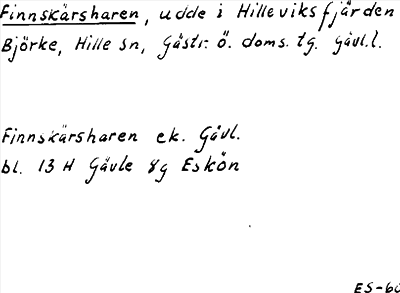 Finnskärsharen, udde i Hilleviksfjärden
Björke, Hille sn, Gästr. ö. doms. tg. Gävl.l.
Finnskärsharen ek. Gävl.
bl. 13 H Gävle 8g Eskön
ES-60